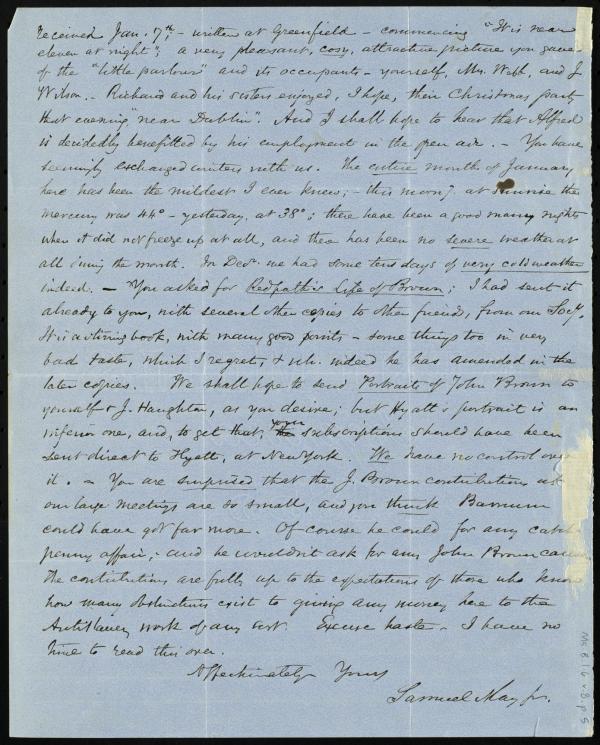 received Jan. 7th – written at Greenfield – commencing "It is near
eleven at night"; a very pleasant, cosy, attractive picture you gave
of the "little parlour" and its occupants – yourself, Mrs. Webb, and J
Wilson. – Richard and his sisters enjoyed, I hope, their Christmas party
that evening "near Dublin". And I shall hope to hear that Alfred
is decidedly benefitted by his employment in the open air. – You have
seemingly exchanged winters with us. The entire month of January,
here has been the mildest I ever knew; – this morng. at sunrise the
mercury was 44° – yesterday, at 38°; there have been a good many nights
when it did not freeze up at all, and there has been no severe weather at
all during the month. In Decr. we had some ten days of very cold weather
indeed. – You asked for Redpath's Life of Brown; I had sent it
already to you, with several other copies to other friends, from our Socy.
It is a stirring book, with many good points – some things too in very
bad taste, which I regret, & wh. indeed he has amended in the
later copies. We shall hope to send Portraits of John Brown to
yourself & J. Haughton, as you desire; but Hyatt's portrait is an
inferior one, and, to get that, your subscriptions should have been
sent direct to Hyatt, at New York. We have no control over
it. – You are surprised that the J. Brown contributions at
our large meetings are so small, and you think Barnum
could have got far more. Of course he could for any catch
penny affair; – and he wouldn't ask for any John Brown cause.
The contributions are fully up to the expectations of those who know
how many obstructions exist to giving any money here to the
Antislavery work of any sort. Excuse haste – I have no
time to read this over.
Affectionately Yours
Samuel May Jr.
Ms. B.1.6 v.8 p.5